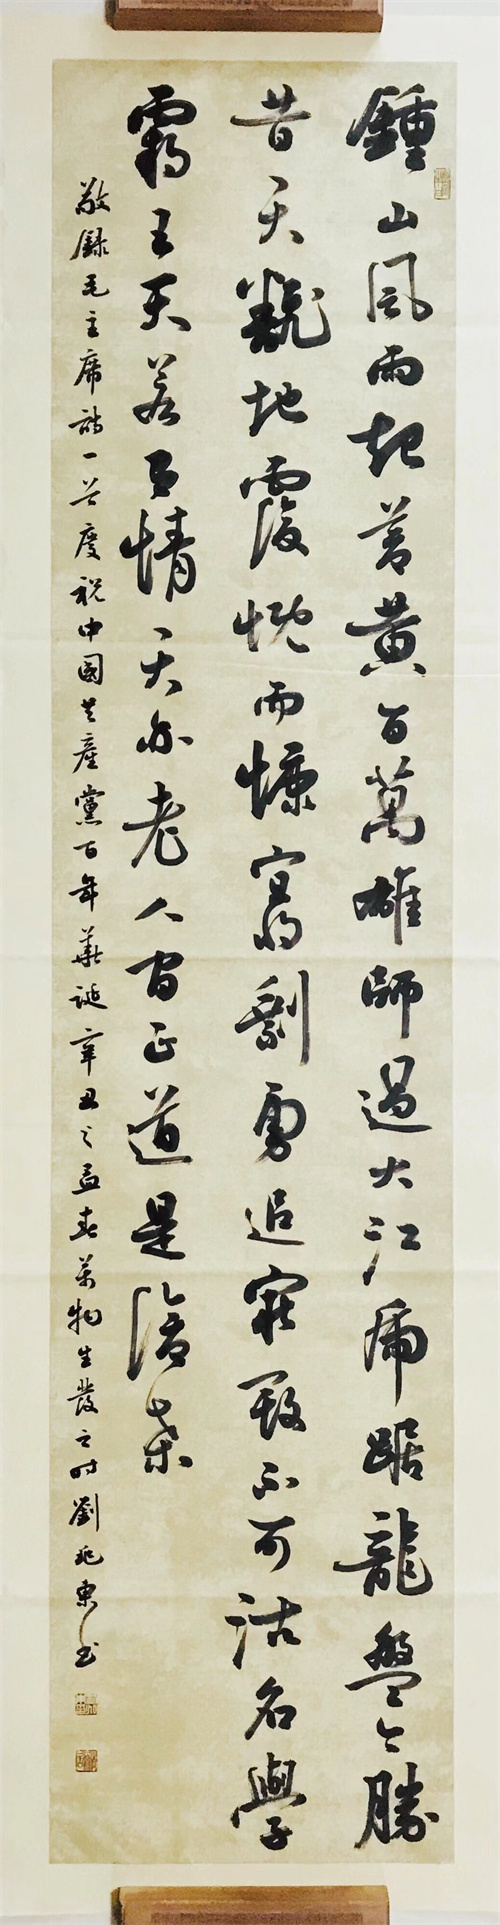 鍾山風雨起蒼黃百萬雄師過大江虎踞龍盤今勝
昔天翻地覆慨而慷宜將剩勇追窮寇不可沽名學
霸王天若有情天亦老人間正道是滄桑
敬錄毛主席詩一首慶祝中國共產黨百年華誕辛丑之孟春萬物生發之時劉兆東书